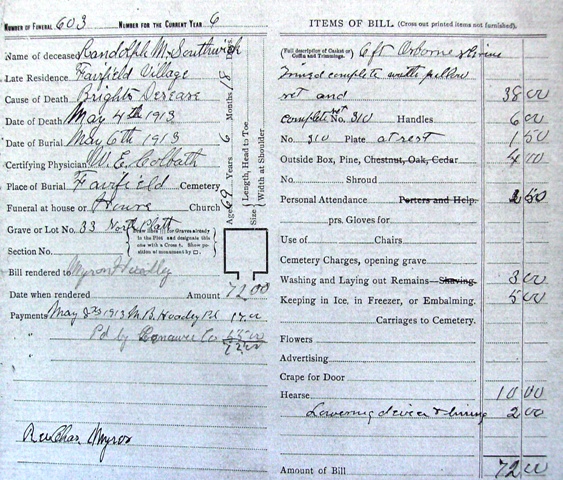 NUMBER OF FUNERAL 603 NUMBER FOR THE CURRENT YEAR 6
Name of deceased Randolph M. Southwick
Late Residence Fairfield Village
Cause of Death Brights Desease
Date of Death May 4th 1913
Date of Burial May 6th 1913
Certifying Physician W. E. Colbath
Place of Burial Fairfield Cemetery
Funeral at house or House Church
Grave or Lot No. 33 North Platt
Section No.
Graves already in the Plot and designate this one with a Cross †. Show position of monument by □.
Age 69 Years 6 Months 18 Days
Size Length, Head to Toe.
Width at Shoulder
Bill rendered to Myron Hoadley
Date when rendered Amount 72.00
Payments May 8th 1913 M. B. Hoadley Pd
" Pd by Lenawee Co
72 00
"
"
Rev Chas Myros
ITEMS OF BILL (Cross out printed items not furnished).
(Full description of Casket or Coffin and Trimmings. 6 ft Osborne
complete with pillow
set and 38 00
complete set No. 310 Handles 6 00
No. 310 Plate at rest 1 50
Outside Box, Pine, Chestnut, Oak, Cedar 4 00
No. Shroud
Personal Attendance Porters and Help. 2 50
prs. Gloves for
Use of Chairs
Cemetery Charges, opening grave
Washing and Laying out Remains Shaving. 3 00
Keeping in Ice, in Freezer, or Embalming. 5 00
Carriages to Cemetery.
Flowers
Advertising
Crape for Door
Hearse 10 00
Lowering device & lining 2 00
Amount of Bill 72 00